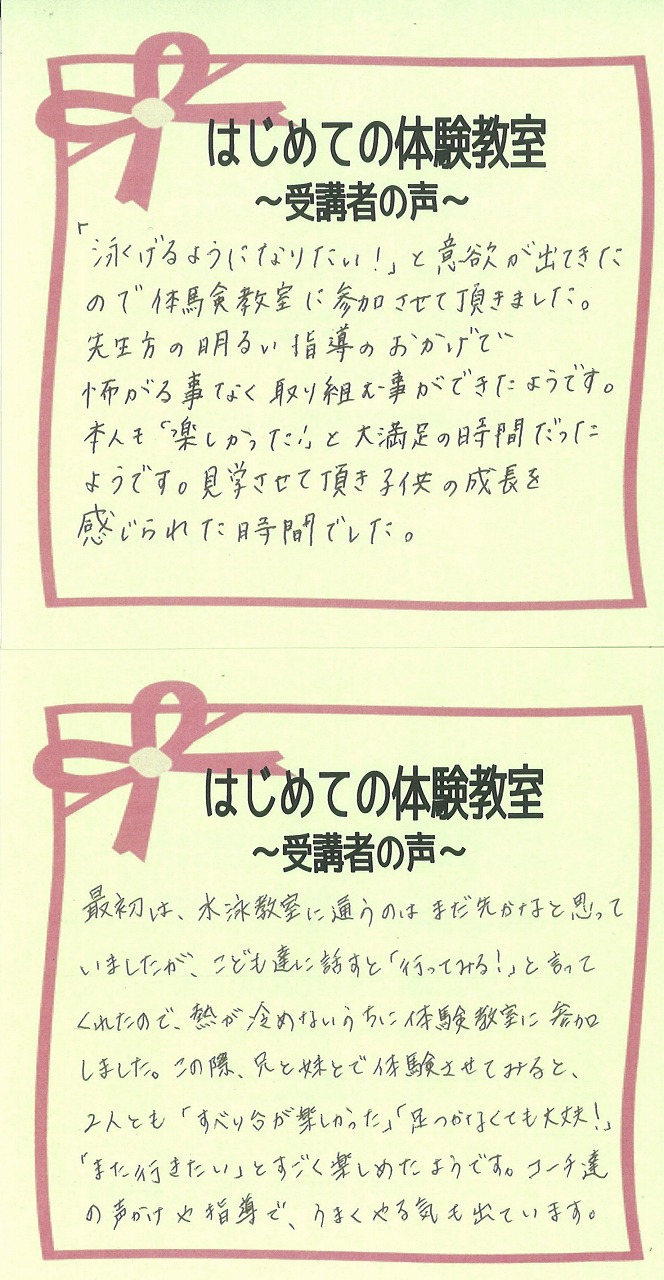 はじめての体験教室
~受講者の声~
「泳くげるようになりたい!」と意欲が出てきた
ので体験教室に参加させて頂きました。
先生方の明るい指導のおかげで
怖がる事なく取り組む事ができたようです。
本人も「楽しかった!」と大満足の時間だった
ようです。見学させて頂き子供の成長を
感じられた時間でした。
はじめての体験教室
~受講者の声~
最初は、水泳教室に通うのはまだ先かなと思って
いましたが、こども達に話すと「行ってみる!」と言って
くれたので、熱が冷めないうちに体験教室に参加
しました。この際、兄と妹とで体験させてみると、
2人とも「すべり台が楽しかった」「足つかなくても大丈夫!」
「また行きたい」とすごく楽しめたようです。コーチ達
の声かけや指導で、うまくやる気も出ています。